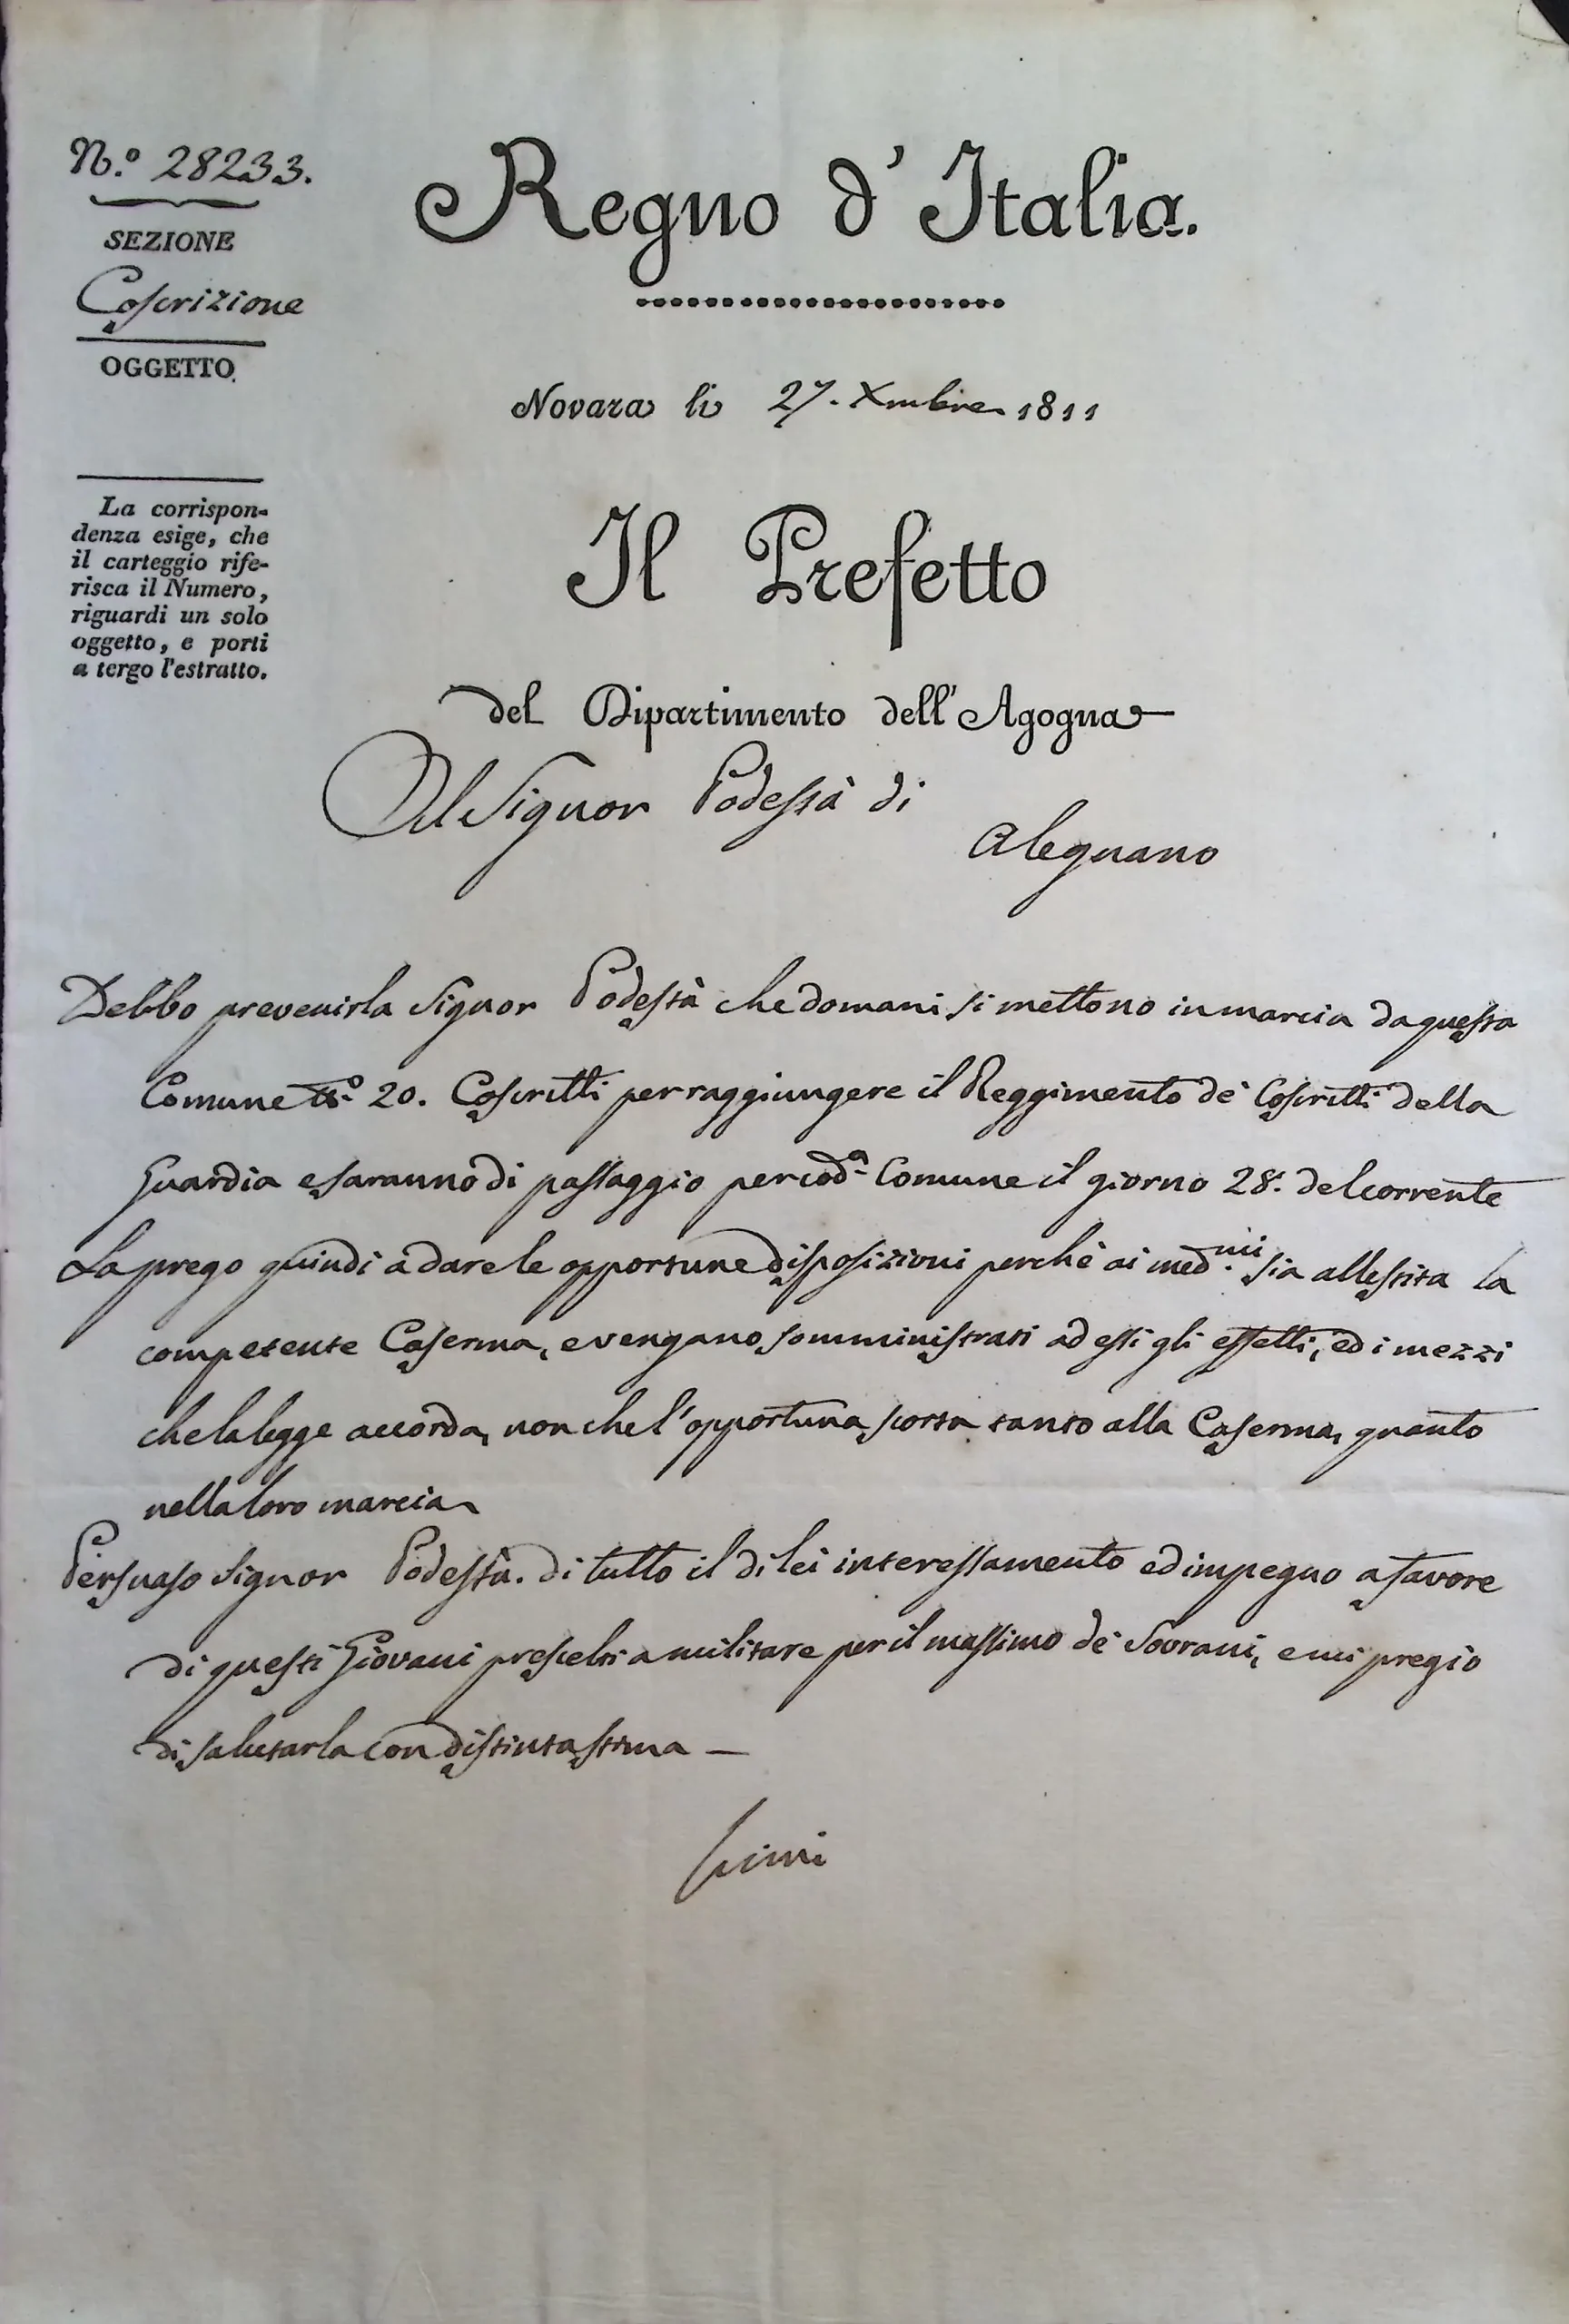 N.º 28233.
SEZIONE
Coscrizione
OGGETTO
La corrispon-
denza esige, che
il carteggio rife-
risca il Numero,
riguardi un solo
oggetto, e porti
a tergo l'estratto.
Regno d'Italia.
Novara li 27. Xmbre 1811
Il Prefetto
del Dipartimento dell'Agogna
Al Signor Podestà di
Alegnano
Debbo prevenirla Signor Podestà che domani si mettono in marcia da questa
Comune N.º 20. Coscritti per raggiungere il Reggimento de' Coscritti della
Guardia e saranno di passaggio per cod.ª Comune il giorno 28. del corrente
La prego quindi a dare le opportune disposizioni perchè ai med.mi sia allestita la
competente Caserma, e vengano somministrati ad essi gli effetti, ed i mezzi
che la legge accorda, non che l'opportuna scorta tanto alla Caserma, quanto
nella loro marcia
Persuaso Signor Podestà. di tutto il di lei interessamento ed impegno a favore
di questi Giovani prescelti a militare per il massimo de' Sovrani, e mi pregio
di salutarla con distinta stima —